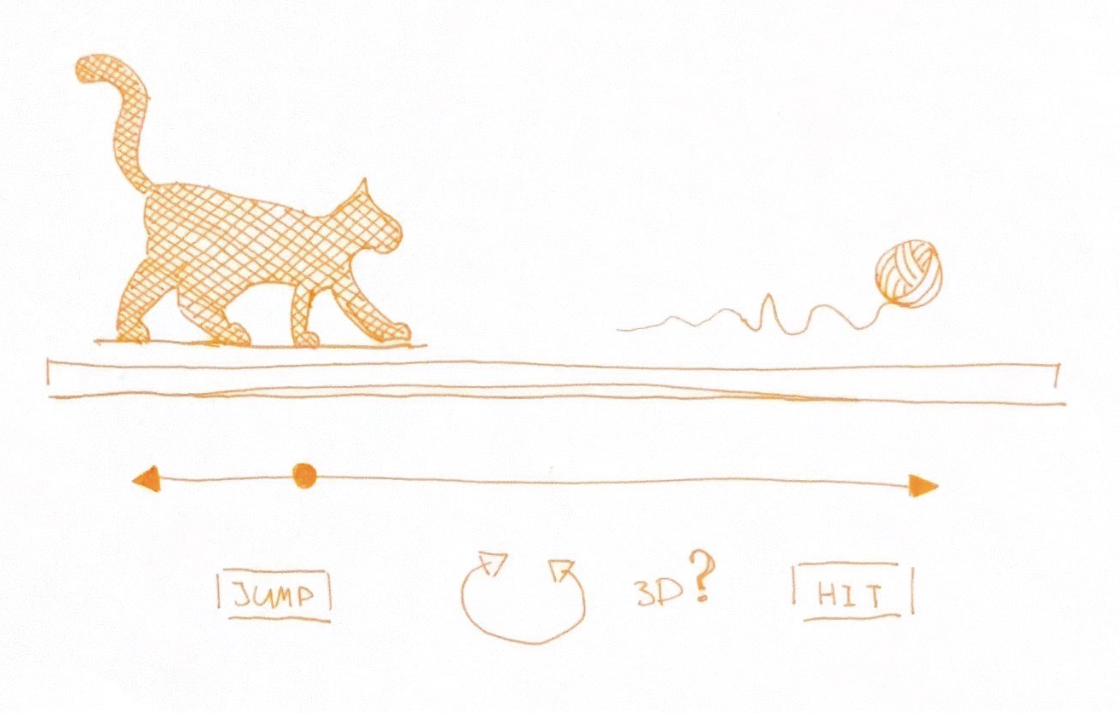 JUMP
3D?
HIT